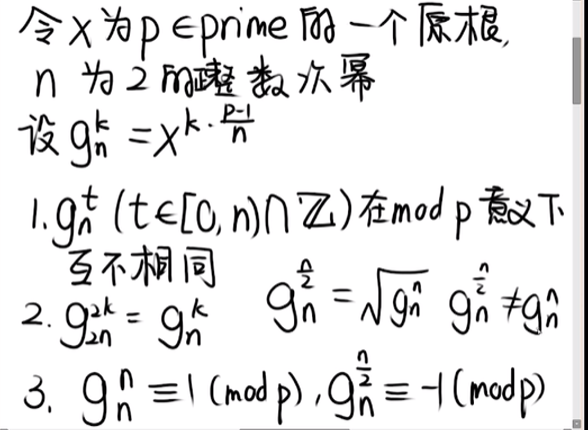 令x为p∈prime的一个原根,
n为2的整数次幂
设 g_n^k = x^{k·\frac{p-1}{n}}
1. g_n^t (t∈[0,n)∩ℤ)在mod p意义下
互不相同
2. g_{2n}^{2k} = g_n^k  g_n^{\frac{n}{2}} = \sqrt{g_n^n}  g_n^{\frac{n}{2}} ≠ g_n^n
3. g_n^n ≡ 1 (mod p), g_n^{\frac{n}{2}} ≡ -1 (mod p)